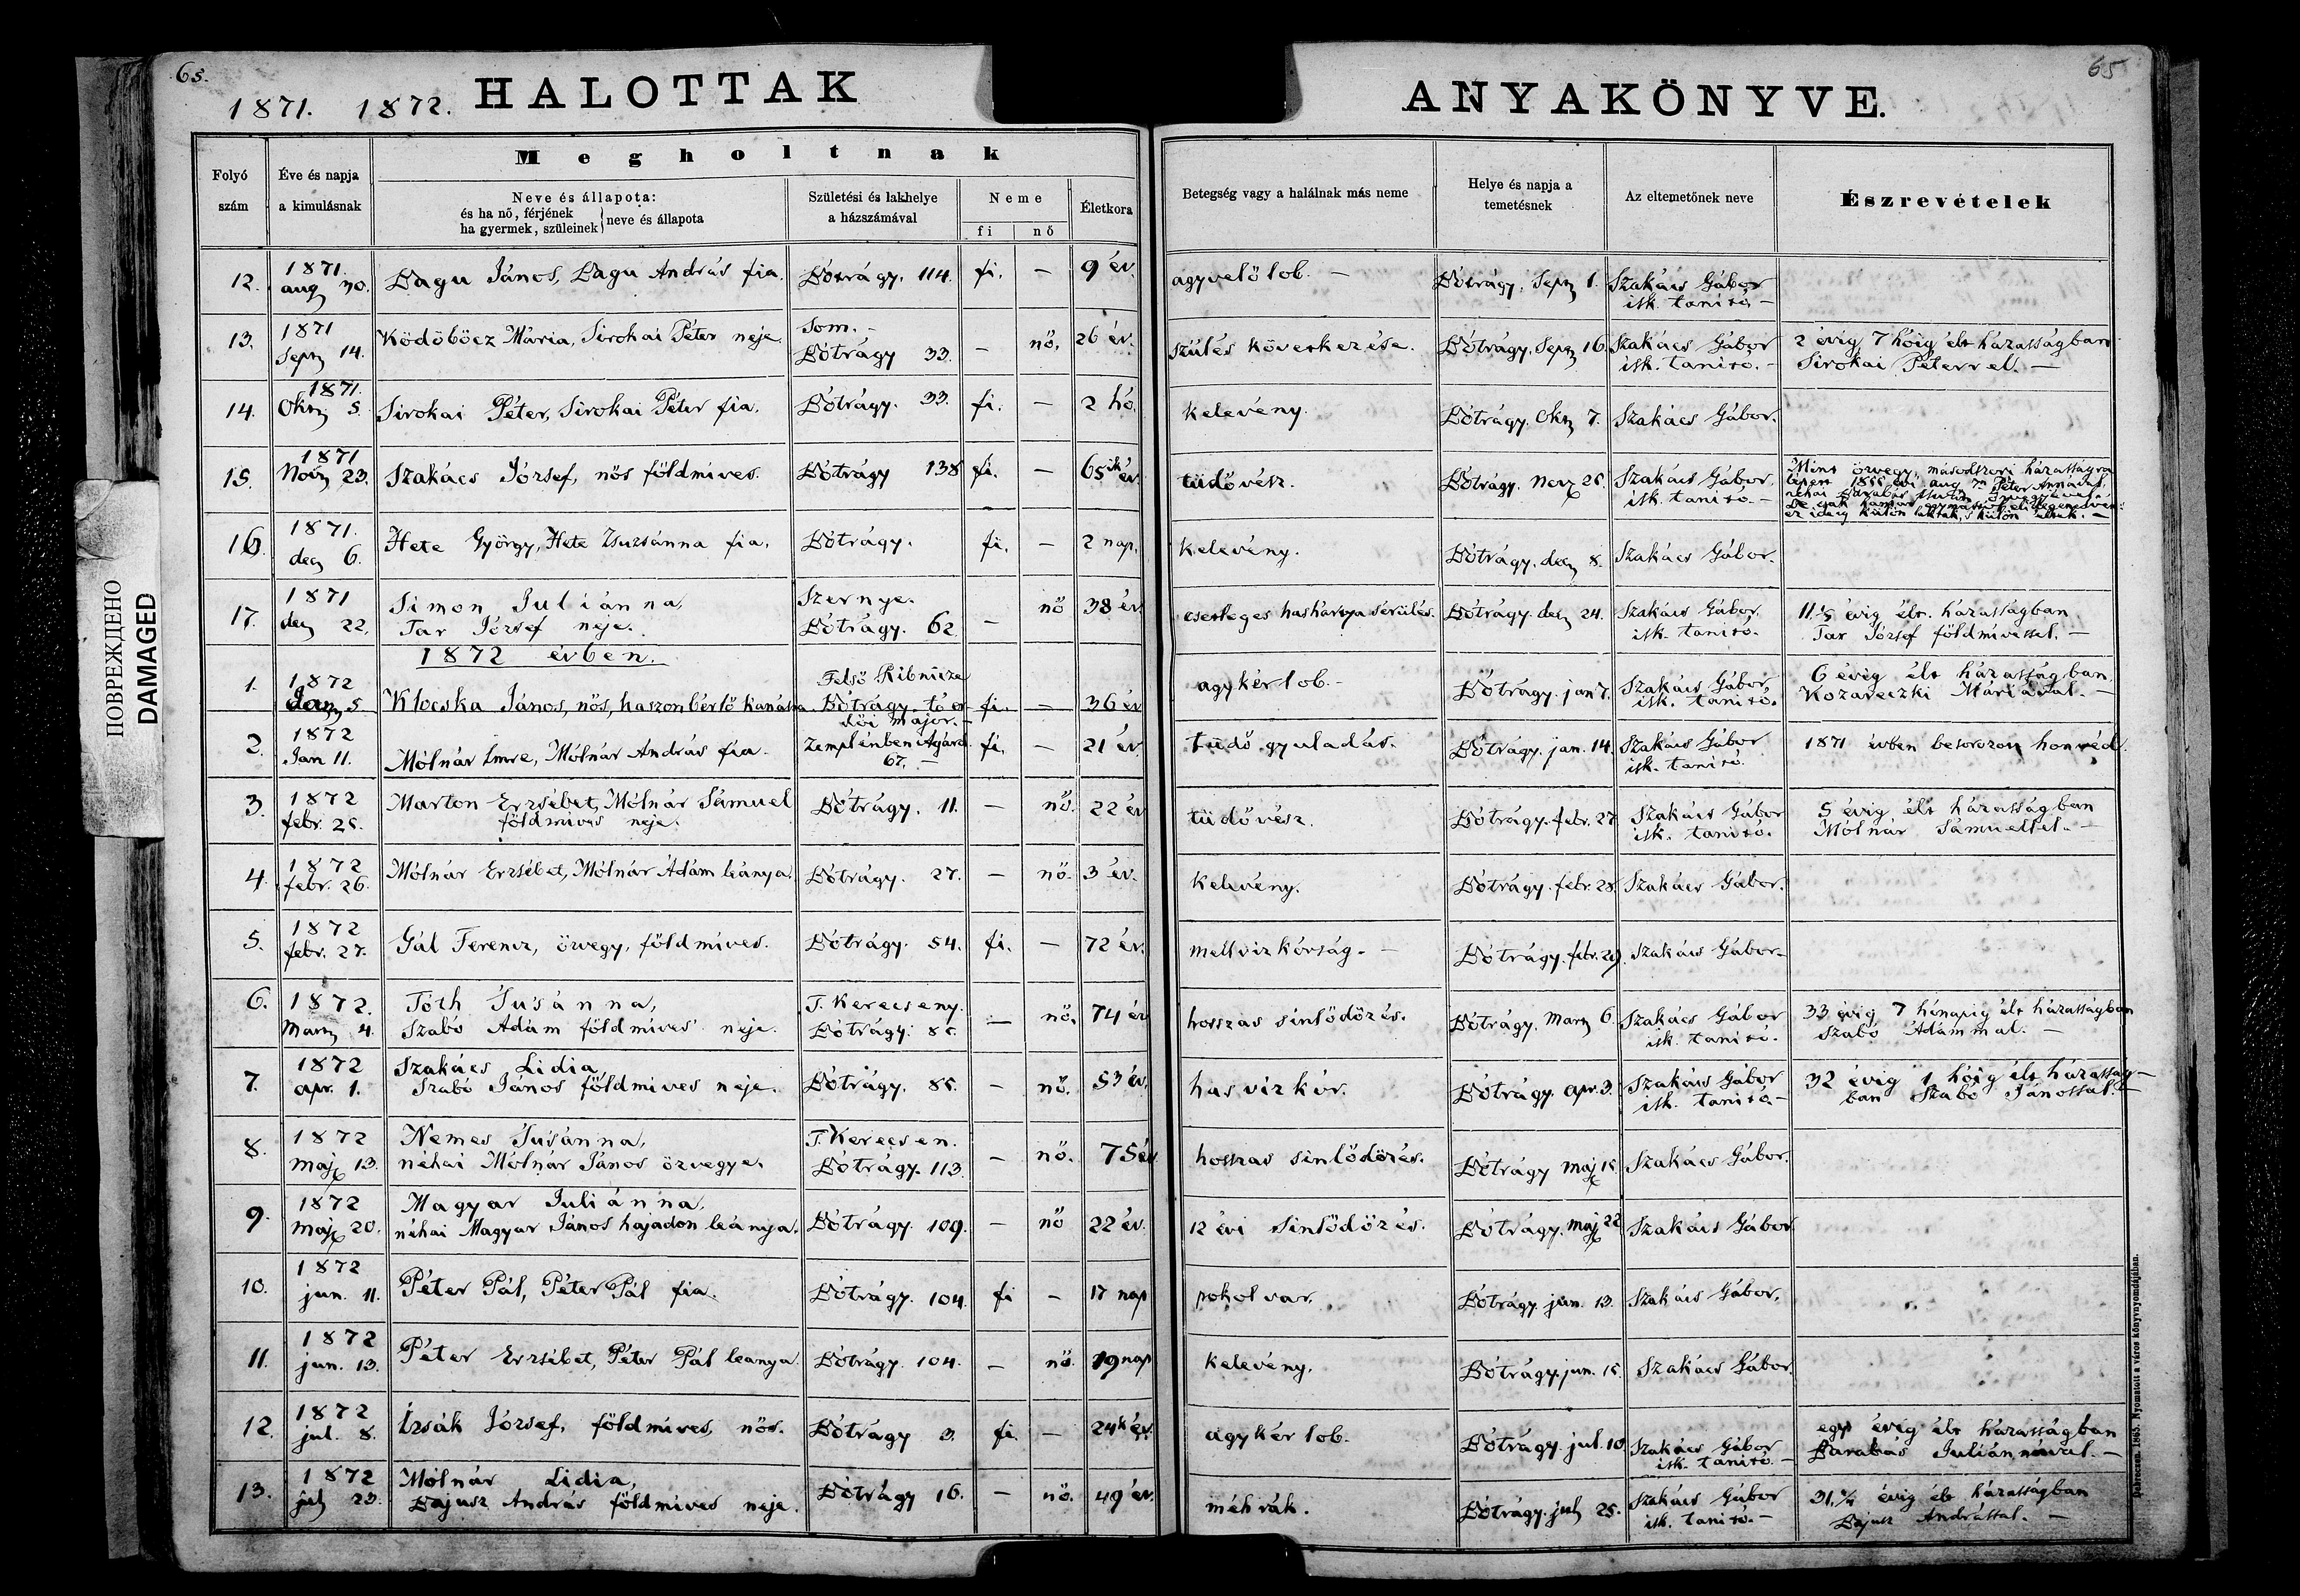 65.
1871. 1872. HALOTTAK ANYAKÖNYVE.
65
Folyó szám
Éve és napja a kimulásnak
Megholtnak
Neve és állapota:
és ha nő, férjének
ha gyermek, szüleinek } neve és állapota
Születési és lakhelye a házszámával
Neme
fi nő
Életkora
Betegség vagy a halálnak más neme
Helye és napja a temetésnek
Az eltemetőnek neve
Észrevételek
12. 1871. aug 30. Bagu János, Bagu András fia. Bótrágy. 114. fi. — 9 év. agyvelőlob. — Bótrágy. Sept 1. Szakács Gábor isk. tanító. —
13. 1871 Sept 14. Ködöböcz Mária, Sirokai Péter neje. Som. — Bótrágy 33. — nő. 26 év. szülés következése. Bótrágy. Sept 16. Szakács Gábor isk. tanító. — 2 évig 7 hóig élt házasságban Sirokai Péterrel. —
14. 1871. Okt 5. Sirokai Péter, Sirokai Péter fia. Bótrágy. 33. fi. — 2 hó. kelevény. Bótrágy. Okt 7. Szakács Gábor.
15. 1871 Nov 23. Szakács József, nős földmives. Bótrágy 138 fi. — 65ik év. tüdővész. Bótrágy. Nov 25. Szakács Gábor isk. tanító. — Mint özvegy, másodszori házasságra lépett 1855 évi aug 7n Péter Annával, néhai Barabás István özvegyével
16. 1871. dec 6. Hete György, Hete Zsuzsánna fia. Bótrágy. fi. — 2 nap. kelevény. Bótrágy. dec 8. Szakács Gábor.
17. 1871 dec 22. Simon Juliánna, Tar József neje. Szernye. Bótrágy. 62. — nő 38 év. esetleges hashártya sérülés. Bótrágy. dec 24. Szakács Gábor isk. tanító. 11.5 évig élt házasságban Tar József földmivessel. —
1872 évben.
1. 1872 Jan 5. Klocska János, nős, haszonbérlő kanásza Felső Ribnicze Bótrágy tó er dői major. — fi. — 36 év agykérlob. — Bótrágy. jan 7. Szakács Gábor isk. tanító. 6 évig élt házasságban Kozareczki Máriával. —
2. 1872 Jan 11. Mólnár Imre, Mólnár András fia. Zemplénben Agárd. 67. — fi. — 21 év. tüdő gyuladás. Bótrágy. jan. 14. Szakács Gábor isk. tanító. 1871 évben besorozott honvéd.
3. 1872 febr. 25. Marton Erzsébet, Mólnár Sámuel földmives neje. Bótrágy. 11. — nő. 22 év tüdővész. Bótrágy. febr. 27. Szakács Gábor isk. tanító. 5 évig élt házasságban Mólnár Sámuellel. —
4. 1872 febr. 26. Mólnár Erzsébet, Mólnár Ádám leánya. Bótrágy. 27. — nő. 3 év. kelevény. Bótrágy. febr. 28. Szakács Gábor.
5. 1872 febr. 27. Gál Ferencz, özvegy, földmives. Bótrágy. 54. fi. — 72 év. mellvizkórság. — Bótrágy. febr. 29. Szakács Gábor.
6. 1872. Mart 4. Tóth Su'sánna, Szabó Ádám földmives neje. T. Kerecseny. Bótrágy. 85. — nő. 74 év hosszas sinlődözés. Bótrágy. Mart 6. Szakács Gábor isk. tanító. 33 évig 7 hónapig élt házasságban Szabó Ádámmal. —
7. 1872 apr. 1. Szakács Lidia, Szabó János földmives neje. Bótrágy. 85. — nő. 53 év. hasvízkór. Bótrágy. apr. 3. Szakács Gábor isk. tanító. — 32 évig 1 hóig élt házasság- ban Szabó Jánossal. —
8. 1872 maj 13. Nemes Su'sánna, néhai Mólnár János özvegye. T. Kerecsen. Bótrágy. 113. — nő. 75 év hosszas sinlődözés. Bótrágy maj 15. Szakács Gábor.
9. 1872 maj 20. Magyar Juliánna, néhai Magyar János hajadon leánya. Bótrágy. 109. — nő 22 év. 12 évi sinlődözés. Bótrágy. maj 22 Szakács Gábor.
10. 1872 jun. 11. Péter Pál, Péter Pál fia. Bótrágy. 104. fi — 17 nap pokolvar. Bótrágy. jun. 13. Szakács Gábor.
11. 1872 jun. 13. Péter Erzsébet, Péter Pál leanya. Bótrágy. 104. — nő. 19 nap kelevény. Bótrágy. jun. 15. Szakács Gábor.
12. 1872 jul. 8. Izsák József, földmives, nős. Bótrágy 3. fi. — 24k év. agykérlob. Bótrágy. jul. 10 Szakács Gábor isk. tanító. — egy évig élt házasságban Barabás Juliánnával. —
13. 1872 jul 23. Mólnár Lidia, Bajusz András földmives neje. Bótrágy 16. — nő. 49 év. méhrák. Bótrágy. jul 25. Szakács Gábor isk. tanító. — 31. évig élt házasságban Bajusz Andrással. —
Debreczen 1865. Nyomatott a város könyvnyomdájában.
ПОВРЕЖДЕНО
DAMAGED